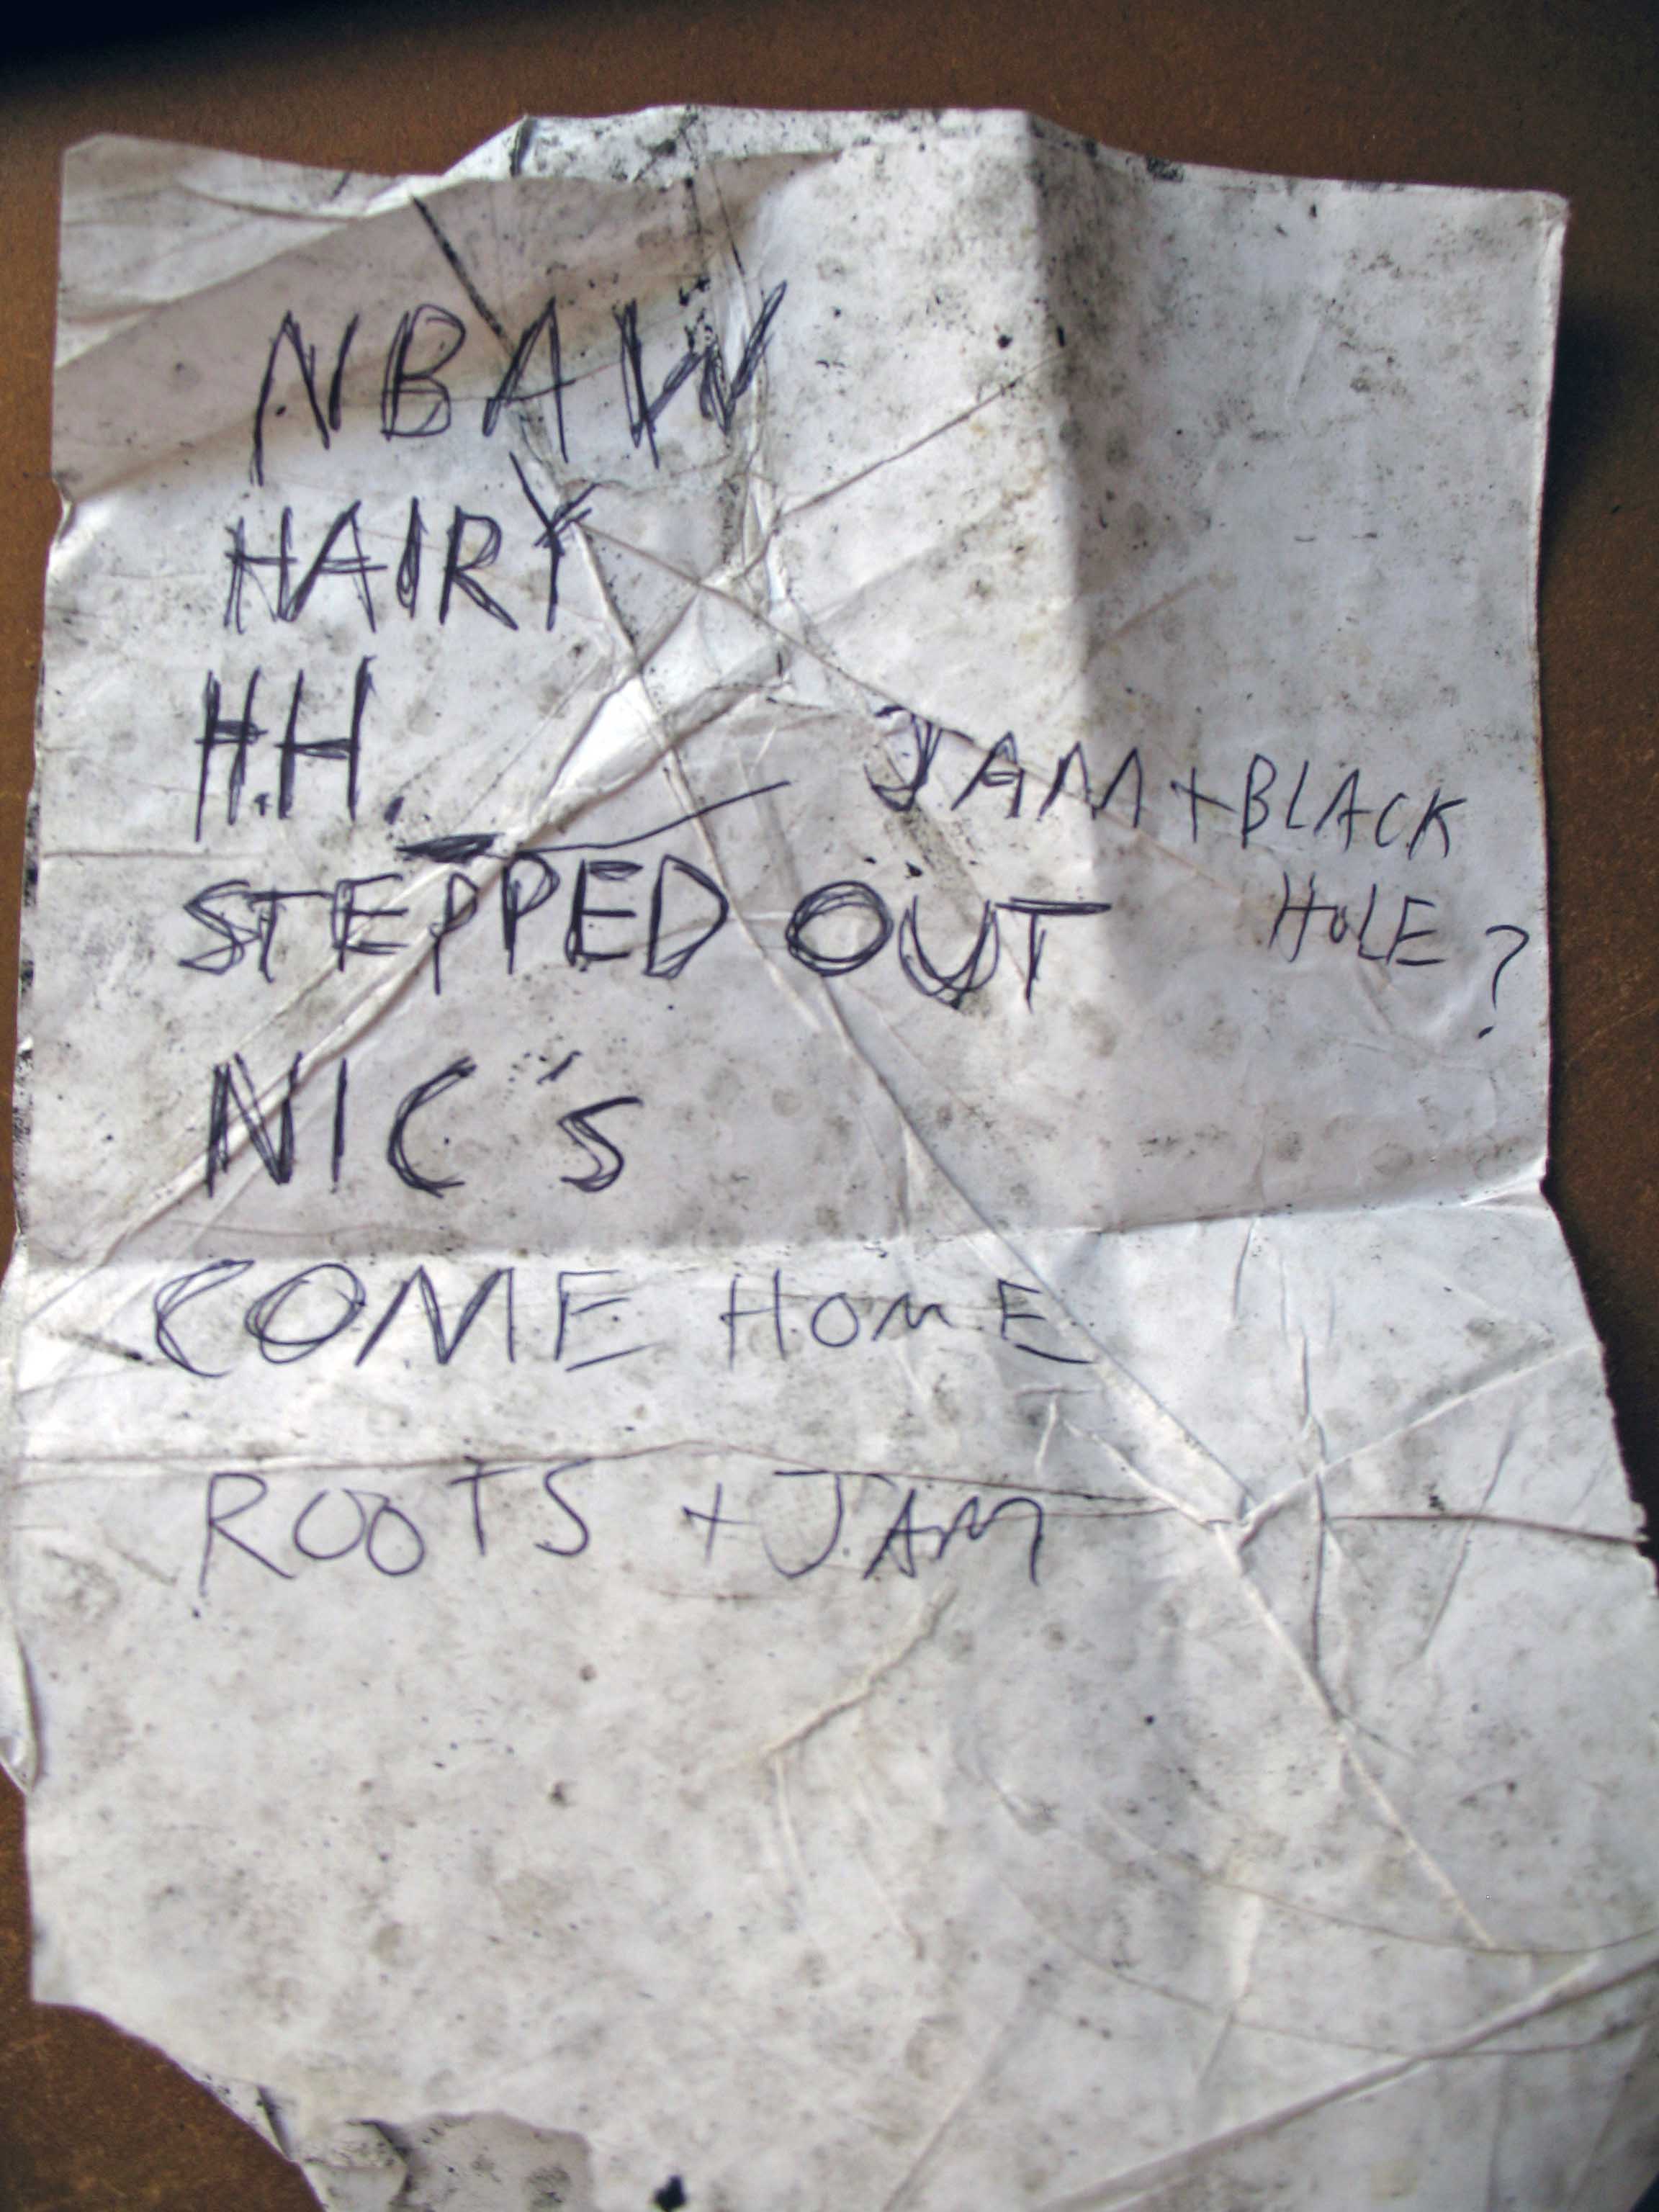 NBAW
HAIRY
H.H.
JAM + BLACK
HOLE ?
STEPPED OUT
NIC's
COME HOME
ROOTS + JAM